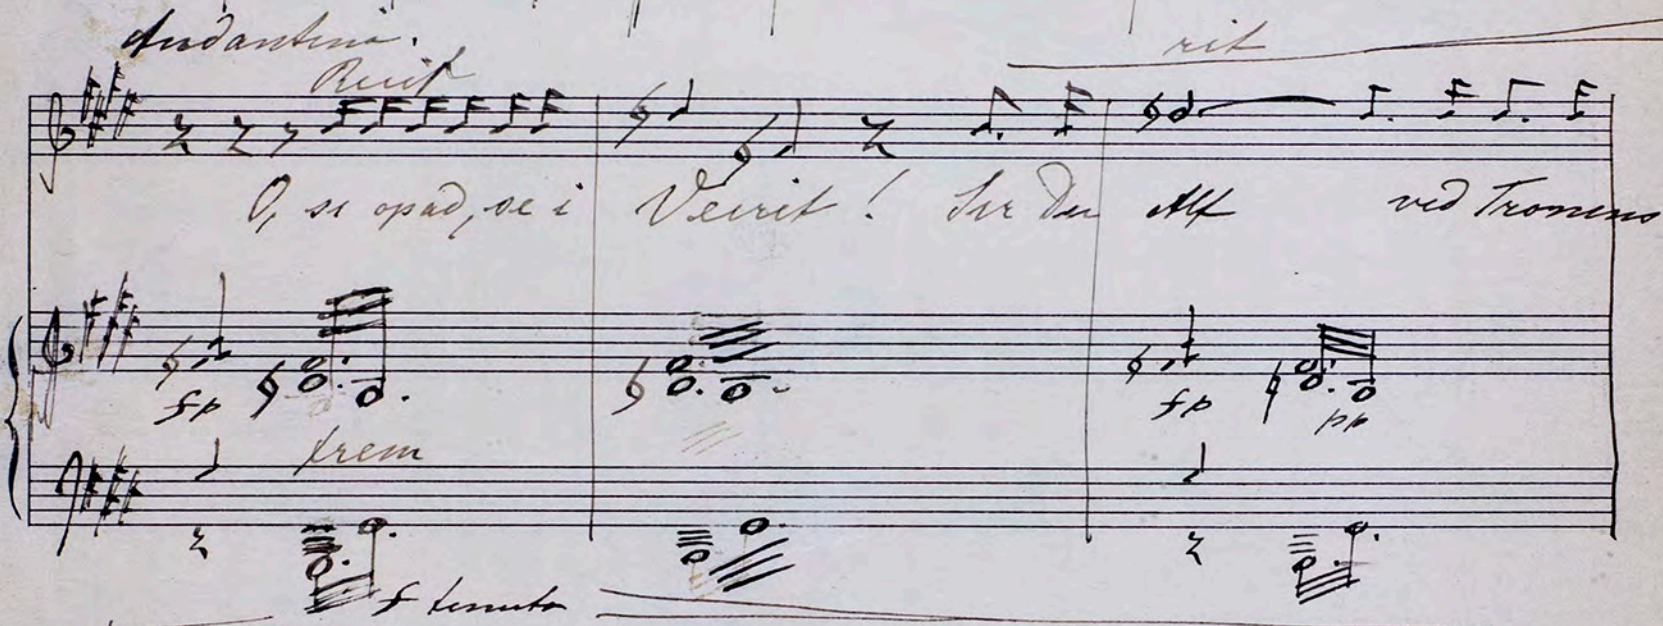 Andantino.
Recit
rit
O, se opad, se i Veiret! Ser Du Alf ved Tronens
fp
fp
pp
trem
f tenuto